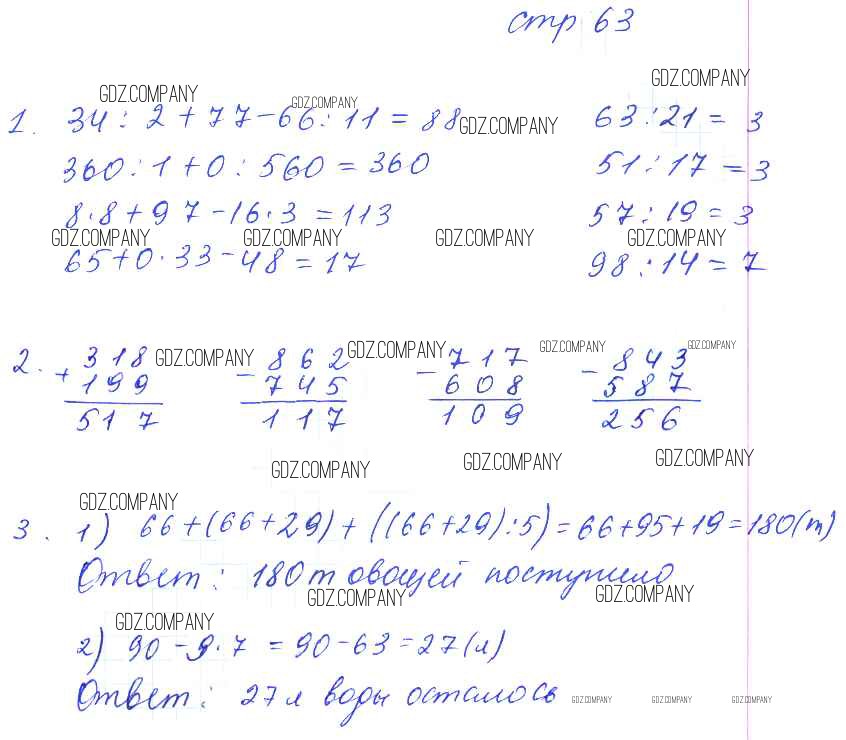 стр 63
GDZ.COMPANY GDZ.COMPANY GDZ.COMPANY
1. 34 : 2 + 77 - 66 : 11 = 88 GDZ.COMPANY 63 : 21 = 3
360 : 1 + 0 : 560 = 360 51 : 17 = 3
8 · 8 + 97 - 16 · 3 = 113 57 : 19 = 3
GDZ.COMPANY GDZ.COMPANY GDZ.COMPANY GDZ.COMPANY
65 + 0 · 33 - 48 = 17 98 : 14 = 7
2. + 318 GDZ.COMPANY - 862 GDZ.COMPANY - 717 GDZ.COMPANY - 843 GDZ.COMPANY
199 745 608 587
517 117 109 256
GDZ.COMPANY GDZ.COMPANY GDZ.COMPANY
GDZ.COMPANY
3. 1) 66 + (66 + 29) + ((66 + 29) : 5) = 66 + 95 + 19 = 180 (т)
Ответ: 180 т овощей поступило
GDZ.COMPANY GDZ.COMPANY
GDZ.COMPANY
2) 90 - 9 · 7 = 90 - 63 = 27 (л)
Ответ: 27 л воды осталось GDZ.COMPANY GDZ.COMPANY GDZ.COMPANY